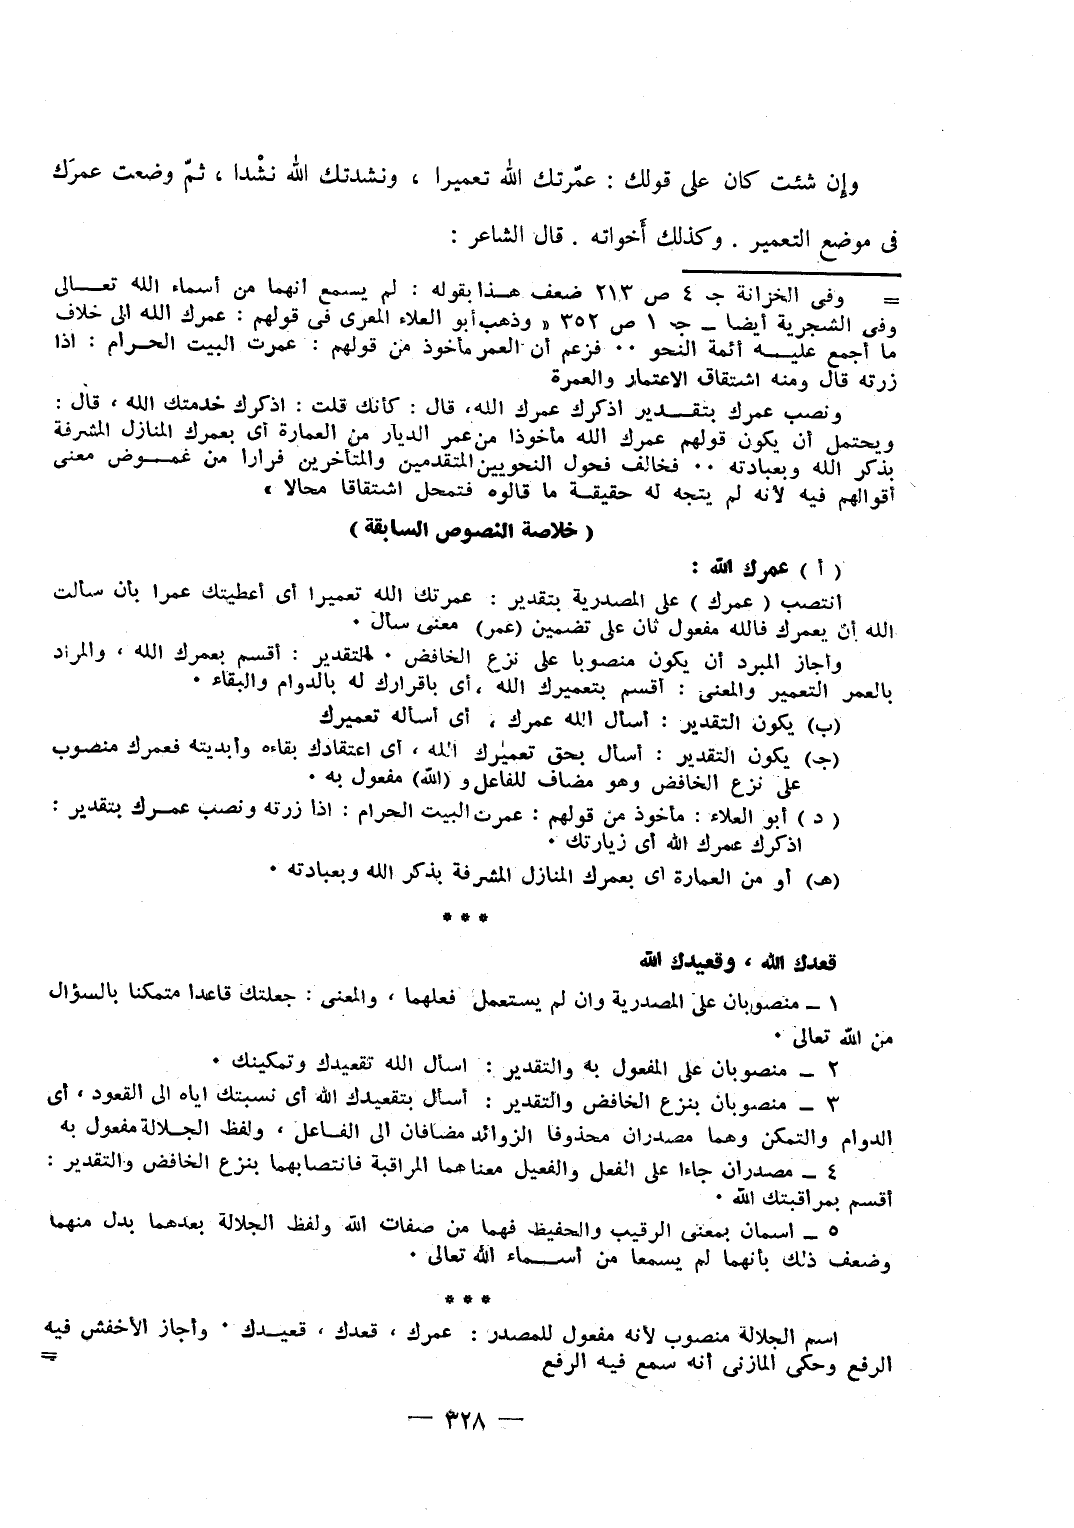 وإن شئت كان على قولك : عمّرتك الله تعميرا ، ونشدتك الله نشْدا ، ثمّ وضعت عمرَك
فى موضع التعمير . وكذلك أَخواته . قال الشاعر :
= وفى الخزانة جـ ٤ ص ٢١٣ ضعف هـذا بقوله : لم يسمع أنهما من أسماء الله تعـالى
وفى الشجرية أيضا ــ جـ ١ ص ٣٥٢ « وذهب أبو العلاء المعرى فى قولهم : عمرك الله الى خلاف
ما أجمع عليـه أئمة النحو ٠٠ فزعم أن العمر مأخوذ من قولهم : عمرت البيت الحـرام : اذا
زرته قال ومنه اشتقاق الاعتمار والعمرة
ونصب عمرك بتقـدير اذكرك عمرك الله، قال : كأنك قلت : اذكرك خدمتك الله ، قال :
ويحتمل أن يكون قولهم عمرك الله مأخوذا من عمر الديار من العمارة أى بعمرك المنازل المشرفة
بذكر الله وبعبادته ٠٠ فخالف فحول النحويين المتقدمين والمتأخرين فرارا من غمـوض معنى
أقوالهم فيه لأنه لم يتجه له حقيقـة ما قالوه فتمحل اشتقاقا محالا »
( خلاصة النصوص السابقة )
( أ ) عمرك الله :
انتصب ( عمرك ) على المصدرية بتقدير : عمرتك الله تعميرا أى أعطيتك عمرا بأن سألت
الله أن يعمرك فالله مفعول ثان على تضمين (عمر) معنى سأل ٠
وأجاز المبرد أن يكون منصوبا على نزع الخافض ٠ التقدير : أقسم بعمرك الله ، والمراد
بالعمر التعمير والمعنى : أقسم بتعميرك الله ،أى باقرارك له بالدوام والبقاء ٠
(ب) يكون التقدير : أسأل الله عمرك ، أى أسأله تعميرك
(جـ) يكون التقدير : أسأل بحق تعميرك الله ، أى اعتقادك بقاءه وأبديته فعمرك منصوب
على نزع الخافض وهو مضاف للفاعل و (الله) مفعول به ٠
( د ) أبو العلاء : مأخوذ من قولهم : عمرت البيت الحرام : اذا زرته ونصب عمـرك بتقدير :
اذكرك عمرك الله أى زيارتك ٠
(هـ) أو من العمارة أى بعمرك المنازل المشرفة بذكر الله وبعبادته ٠
* * *
قعدك الله ، وقعيدك الله
١ ــ منصوبان على المصدرية وان لم يستعمل فعلهما ، والمعنى : جعلتك قاعدا متمكنا بالسؤال
من الله تعالى ٠
٢ ــ منصوبان على المفعول به والتقدير : اسأل الله تقعيدك وتمكينك ٠
٣ ــ منصوبان بنزع الخافض والتقدير : أسأل بتقعيدك الله أى نسبتك اياه الى القعود ، أى
الدوام والتمكن وهما مصدران محذوفا الزوائد مضافان الى الفـاعل ، ولفظ الجـلالة مفعول به
٤ ــ مصدران جاءا على الفعل والفعيل معناهما المراقبة فانتصابهما بنزع الخافض والتقدير :
أقسم بمراقبتك الله ٠
٥ ــ اسمان بمعنى الرقيب والحفيظ فهما من صفات الله ولفظ الجلالة بعدهما بدل منهما
وضعف ذلك بأنهما لم يسمعا من أسـماء الله تعالى ٠
* * *
اسم الجلالة منصوب لأنه مفعول للمصدر : عمرك ، قعدك ، قعيـدك ٠ وأجاز الأخفش فيه
الرفع وحكى المازنى أنه سمع فيه الرفع =
— ٣٢٨ —